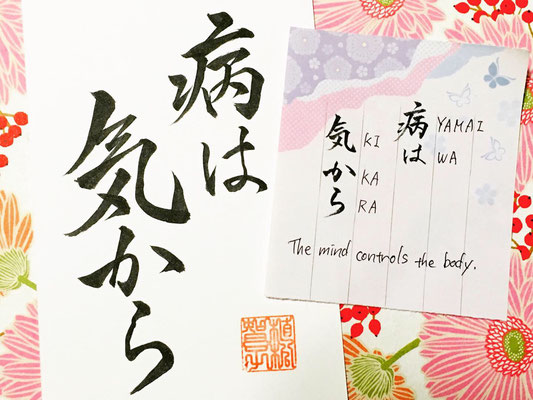 病は
気から
病は
YAMAI
WA
気から
KI
KA
RA
The mind controls the body.